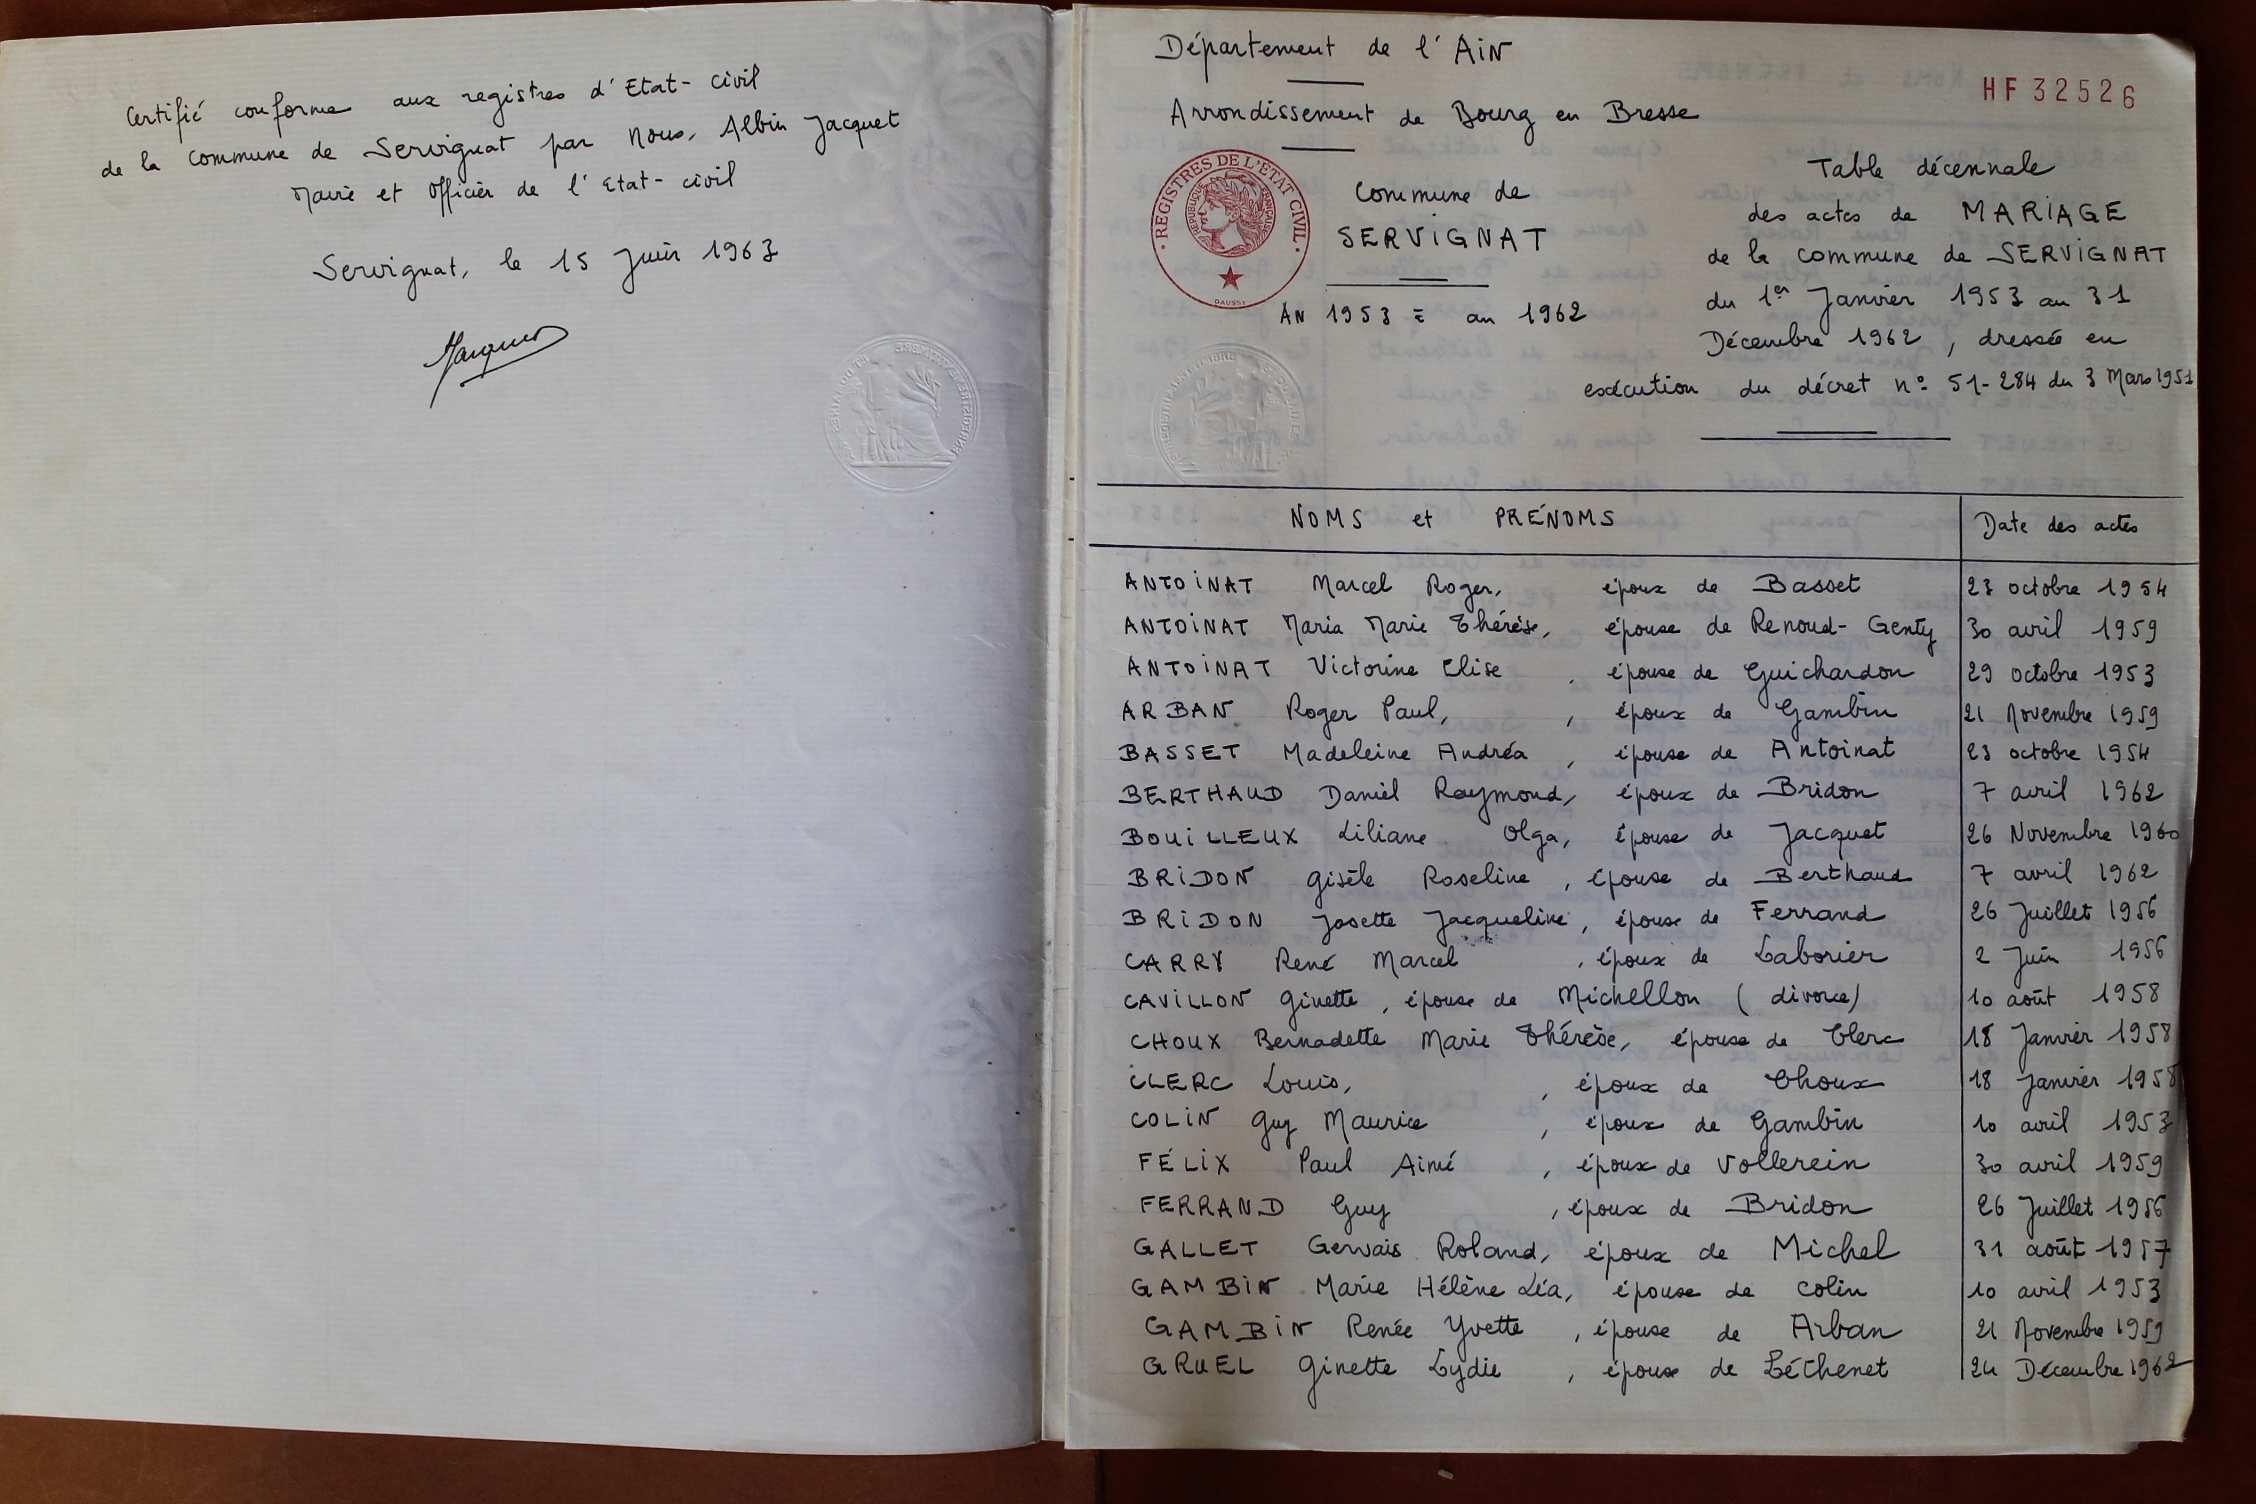 Certifié conforme aux registres d'Etat-civil
de la Commune de Servignat par Nous, Albin Jacquet
Maire et Officier de l'Etat-civil
Servignat, le 15 Juin 1963
Département de l'AiN
HF 32526
Arrondissement de Bourg en Bresse
REGISTRES DE L'ÉTAT CIVIL
RÉPUBLIQUE FRANÇAISE
Commune de
SERViGNAT
AN 1953 = au 1962
Table décennale
des actes de MARiAGE
de la commune de SERViGNAT
du 1er Janvier 1953 au 31
Décembre 1962, dressée en
exécution du décret n° 51-284 du 3 Mars 1951
NOMS et PRÉNOMS Date des actes
ANTOiNAT Marcel Roger, époux de Basset 23 octobre 1954
ANTOiNAT Maria Marie Thérèse, épouse de Renoud-Genty 30 avril 1959
ANTOiNAT Victorine Elise, épouse de Guichardon 29 octobre 1953
ARBAN Roger Paul, , époux de Gambin 21 Novembre 1959
BASSET Madeleine Andréa, épouse de Antoinat 23 octobre 1954
BERTHAUD Daniel Raymond, époux de Bridon 7 avril 1962
BOUiLLEUX Liliane Olga, épouse de Jacquet 26 Novembre 1960
BRiDON Gisèle Roseline, épouse de Berthaud 7 avril 1962
BRiDON Josette Jacqueline, épouse de Ferrand 26 Juillet 1956
CARRY René Marcel, époux de Laborier 2 Juin 1956
CAViLLON Ginette, épouse de Michellon (divorce) 10 août 1958
CHOUX Bernadette Marie Thérèse, épouse de Clerc 18 Janvier 1958
CLERC Louis, , époux de Choux 18 Janvier 1958
COLiN Guy Maurice, époux de Gambin 10 avril 1953
FÉLiX Paul Aimé, époux de Vollerein 30 avril 1959
FERRAND Guy, époux de Bridon 26 Juillet 1956
GALLET Gervais Roland, époux de Michel 31 août 1957
GAMBiN Marie Hélène Léa, épouse de Colin 10 avril 1953
GAMBiN Renée Yvette, épouse de Arban 21 Novembre 1959
GRUEL Ginette Lydie, épouse de Léthenet 24 Décembre 1962